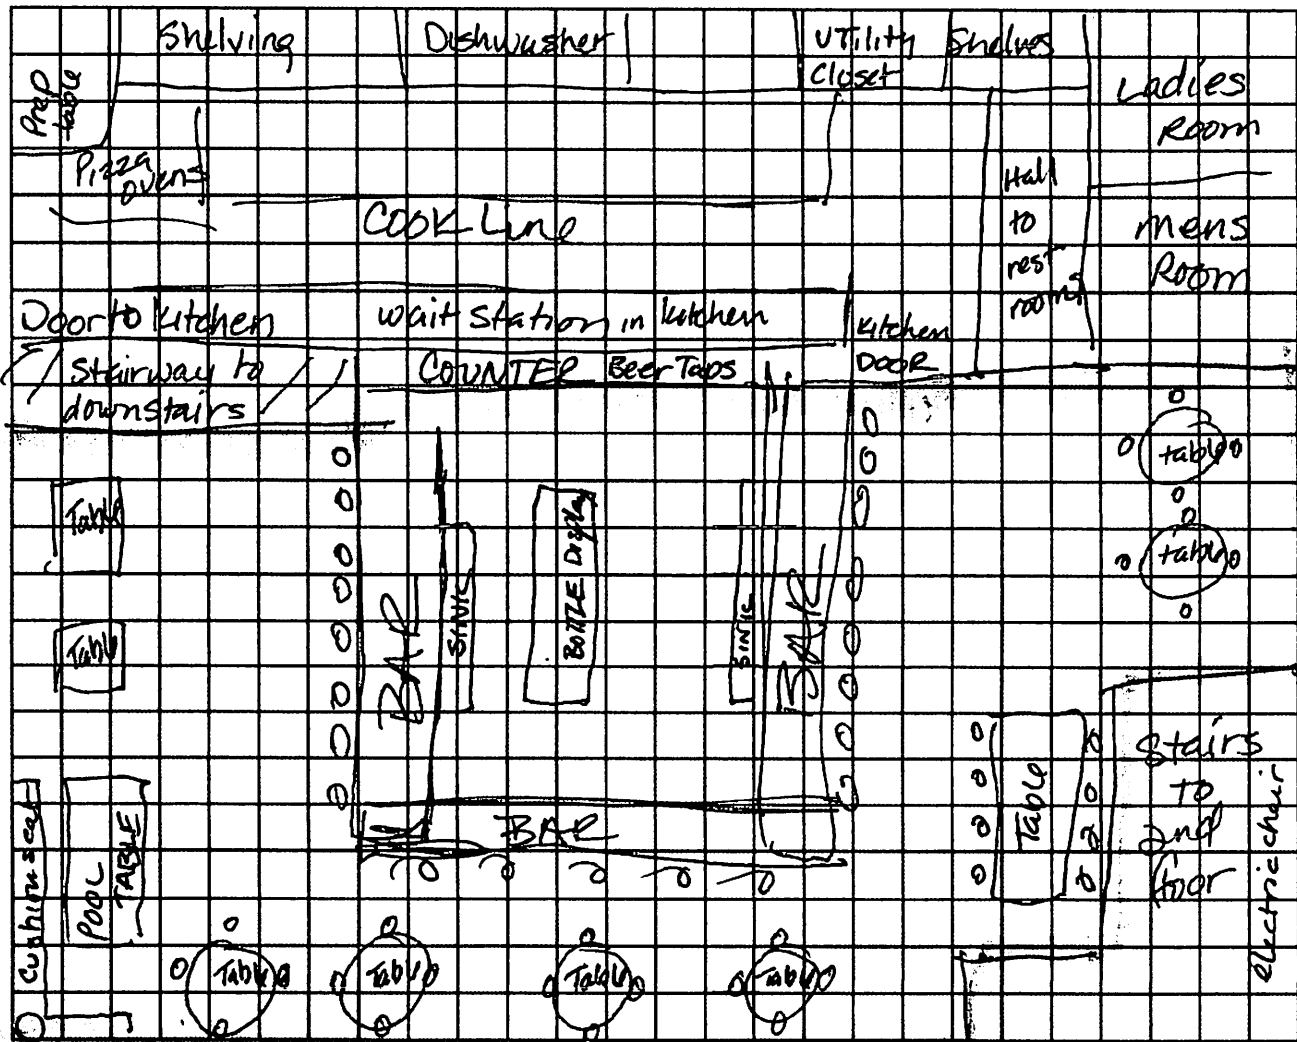 Shelving
Dishwasher
UTility
Closet
Shelves
Ladies
Room
Prep
table
Pizza
ovens
Hall
to
rest
rooms
mens
Room
COOK Line
Door to kitchen
wait station in kitchen
kitchen
DOOR
Stairway to
downstairs
COUNTER Beer Taps
table
table
Table
Table
BAR
SINK
BOTTLE Display
SINK
BAR
BAR
Table
Stairs
to
2nd
floor
electric chair
Cushion seat
POOL
TABLE
Table
Table
Table
Table